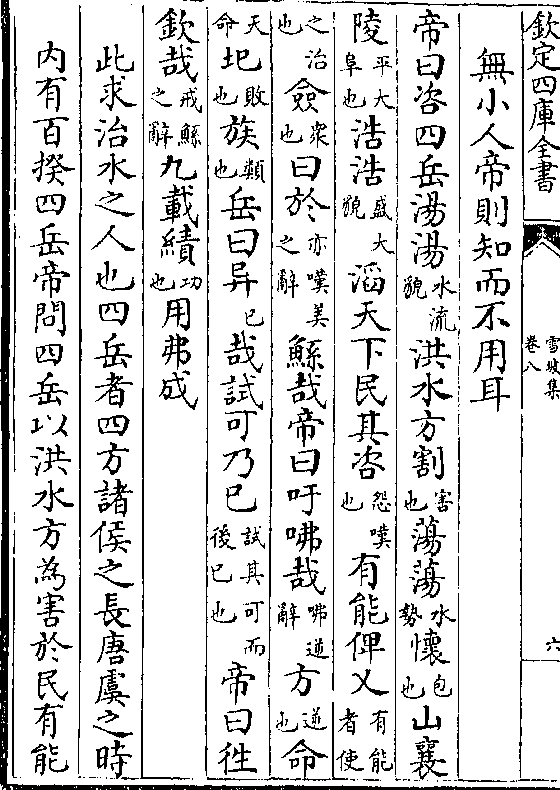 欽定四庫全書
雪坡集
卷八
六
無小人帝則知而不用耳
帝曰咨四岳湯湯水流貌洪水方割害也蕩蕩水勢懷包也山襄
陵平大阜也浩浩盛大貌滔天下民其咨怨嘆也有能俾乂有能者使
之治也僉衆也曰於亦嘆美之辭鯀哉帝曰吁咈哉咈逆辭方逆也命
天命也圮敗也族類也岳曰异已哉試可乃已試其可而後已也帝曰徃
欽哉戒鯀之辭九載績功也用弗成
此求治水之人也四岳者四方諸侯之長唐虞之時
内有百揆四岳帝問四岳以洪水方為害於民有能